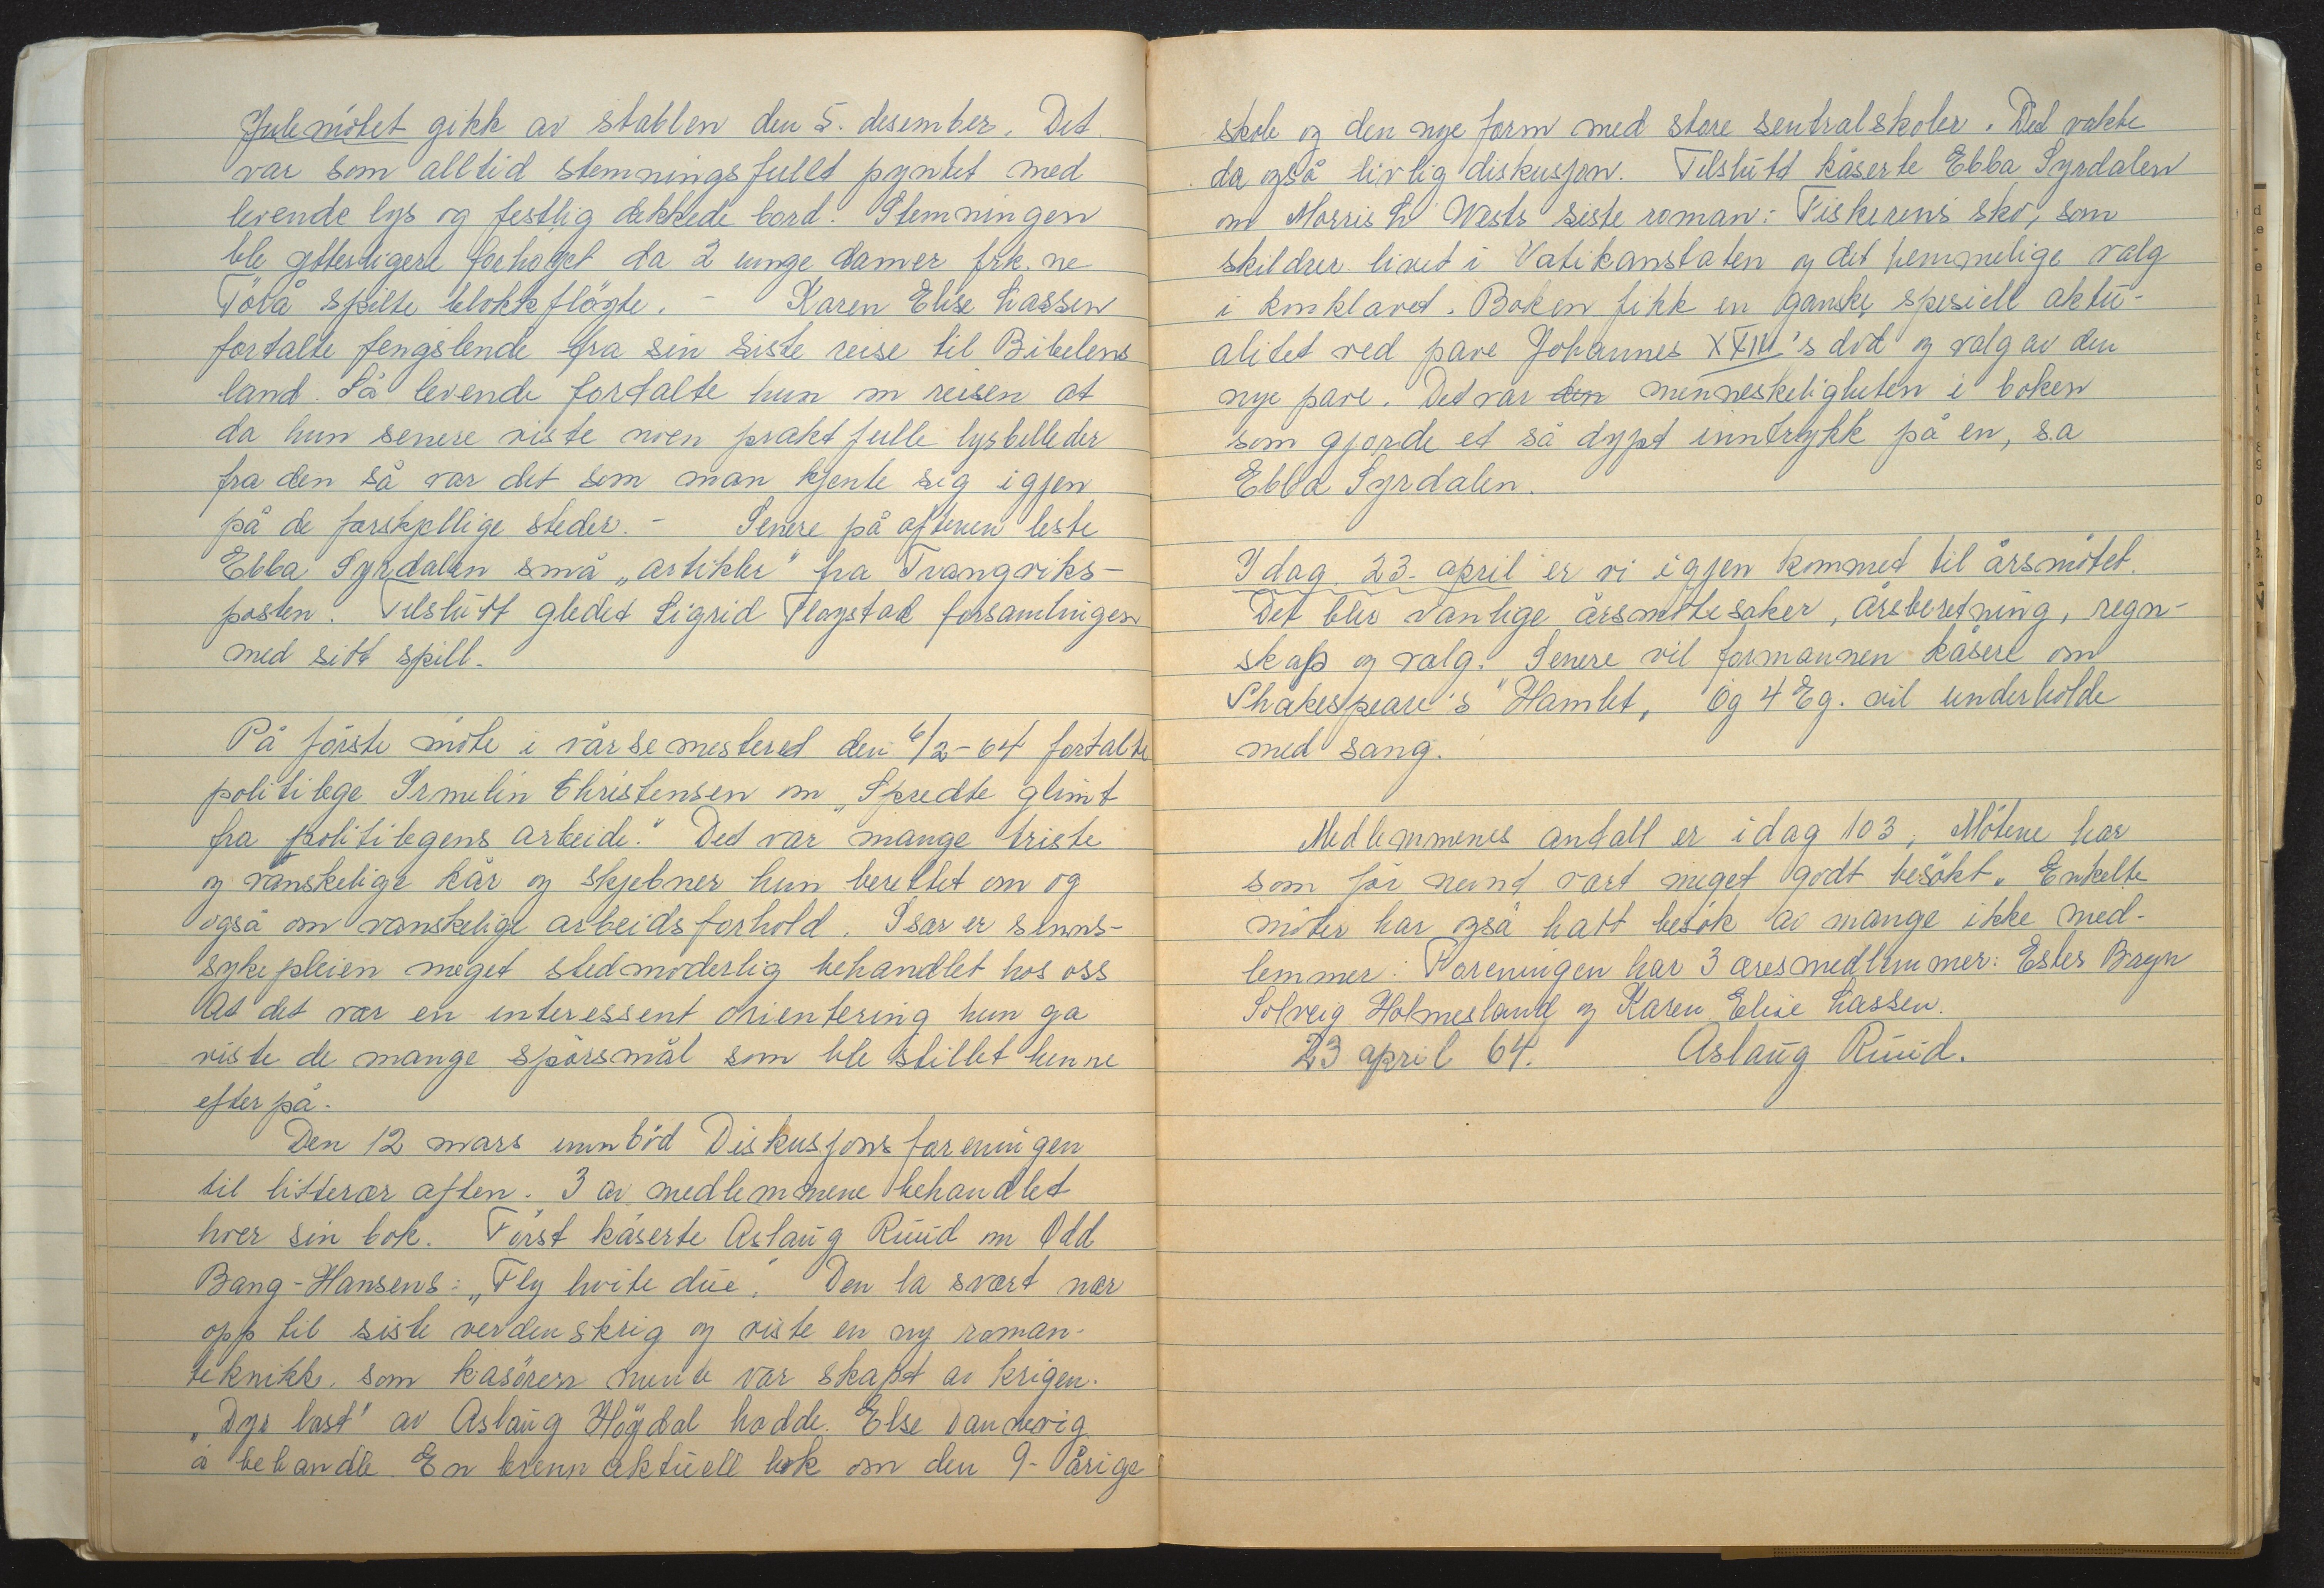 Julemötet gikk av stablen den 5. desember. Det
var som alltid stemningsfullt pyntet med
levende lys og festlig dekkede bord. Stemningen
ble ytterligere forhöyet da 2 unge damer frk.ne
Törå spilte blokkflöyte. - Karen Elise Lassen
fortalte fengslende fra sin siste reise til Bibelens
land. Så levende fortalte hun om reisen at
da hun senere viste noen praktfulle lysbilleder
fra den så var det som man kjente sig igjen
på de forskjellige steder. - Senere på aftenen leste
Ebba Syrdalen små „artikler" fra Trangviks-
posten. Tilslutt gledet Sigrid Flagstad forsamlingen
med sitt spill.
På förste möte i vårsemesteret den 6/2-64 fortalte
politilege Irmelin Christensen om „Spredte glimt
fra politilegens arbeide." Det var mange triste
og vanskelige kår og skjebner hun berettet om og
også om vanskelige arbeidsforhold. Især er sinns-
sykepleien meget stedmoderlig behandlet hos oss
At det var en interessent orientering hun ga
viste de mange spörsmål som ble stillet henne
efterpå.
Den 12 mars innböd Diskusjonsforeningen
til litterær aften. 3 av medlemmene behandlet
hver sin bok. Först kåserte Aslaug Ruud om Odd
Bang-Hansens: „Fly hvite due". Den la svært nær
opp til siste verdenskrig og viste en ny roman-
teknikk, som kasören mente var skapt av krigen.
„Dyr last" av Aslaug Höydal hadde Else Dannevig
å behandle. En brennaktuell bok om den 9-årige
skole og den nye form med store sentralskoler. Det vakte
da også livlig diskusjon. Tilslutt kåserte Ebba Syrdalen
om Morris L Wests siste roman: Fiskerens sko, som
skildrer livet i Vatikanstaten og det hemmelige valg
i konklavet. Boken fikk en ganske spesiell aktu-
alitet ved pave Johannes XXIII's död og valg av den
nye pave. Det var den menneskeligheten i boken
som gjorde et så dypt inntrykk på en, sa
Ebba Syrdalen.
I dag 23. april er vi igjen kommet til årsmötet.
Det blir vanlige årsmötesaker, årsberetning, regn-
skap og valg. Senere vil formannen kåsere om
Shakespeare's "Hamlet, Og 4 Eg. vil underholde
med sang.
Medlemmenes antall er idag 103, Mötene har
som för nevnt vært meget godt besökt. Enkelte
möter har også hatt besök av mange ikke med-
lemmer. Foreningen har 3 æresmedlemmer: Ester Bryn
Solveig Holmesland og Karen Elise Lassen.
23 april 64. Aslaug Ruud.